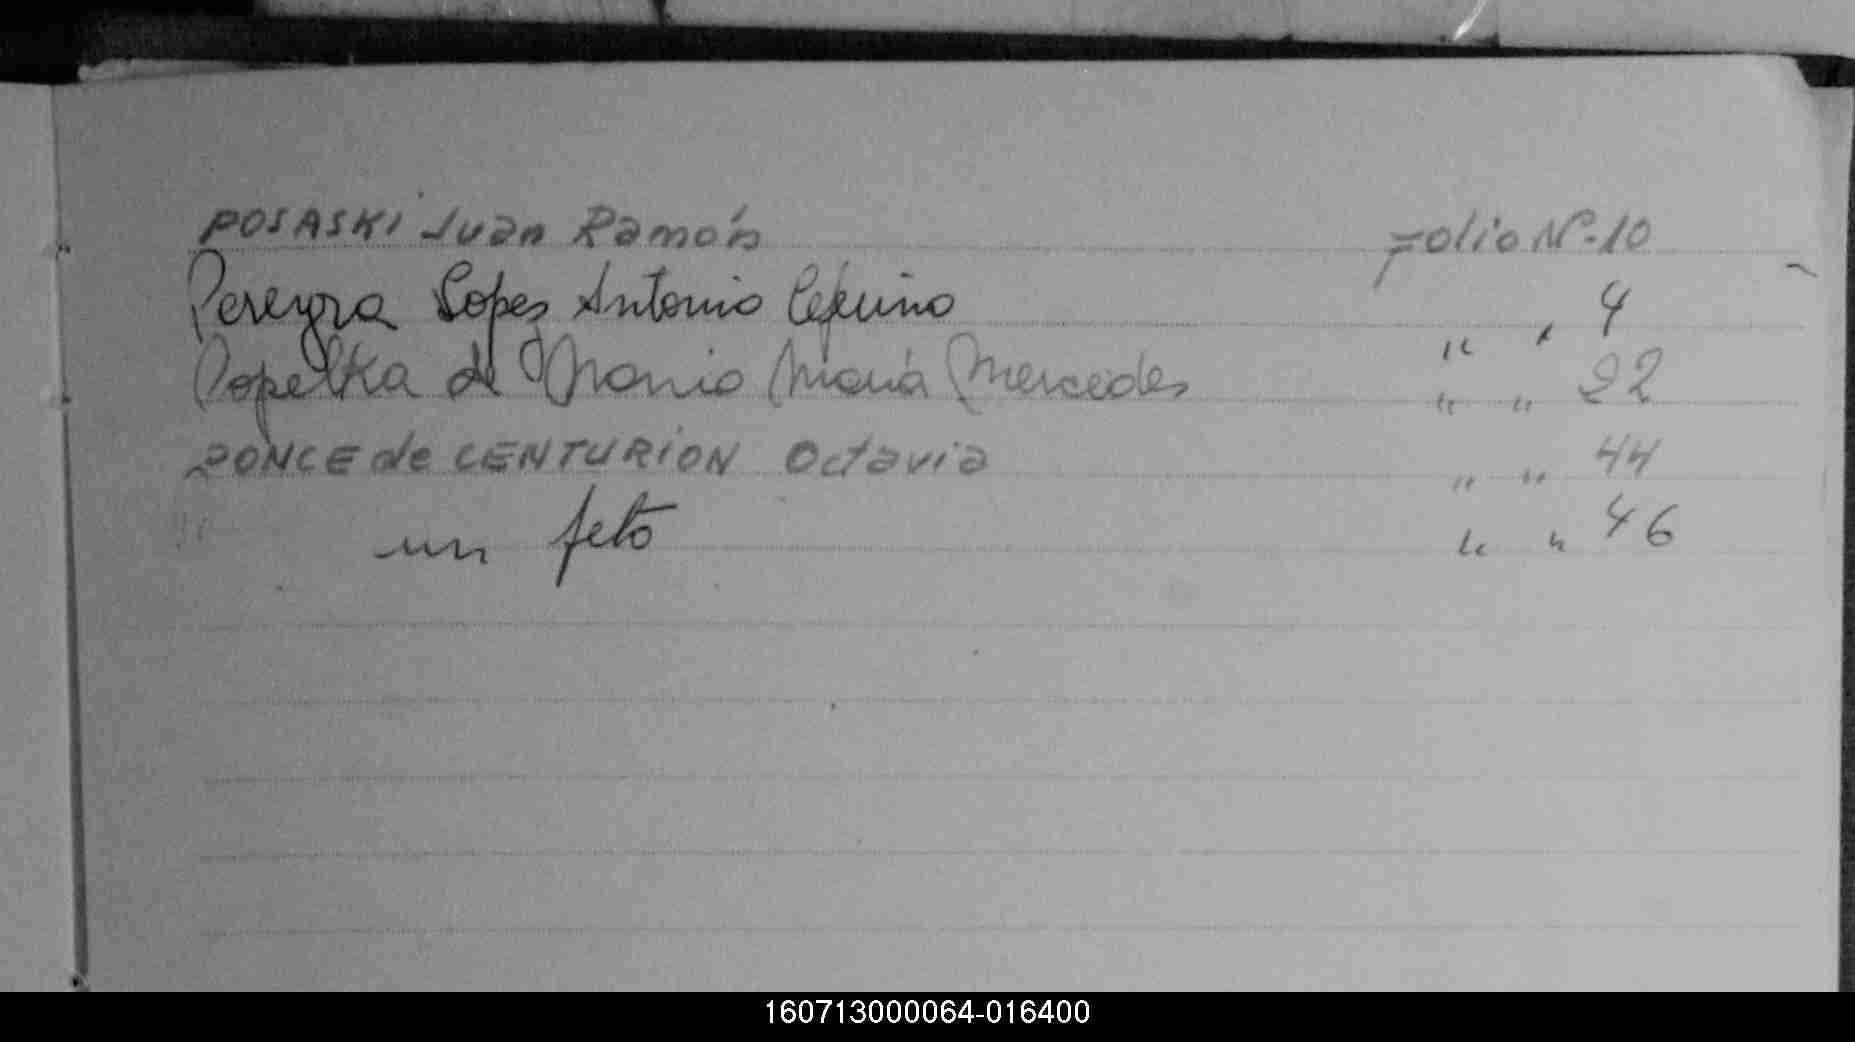 POSASKI Juan Ramón folio Nº 10
Pereyra Lopes Antonio Ceferino " " 4
Popelka de María Mercedes " " 22
PONCE de CENTURION Octavia " " 44
un feto " " 46
160713000064-016400